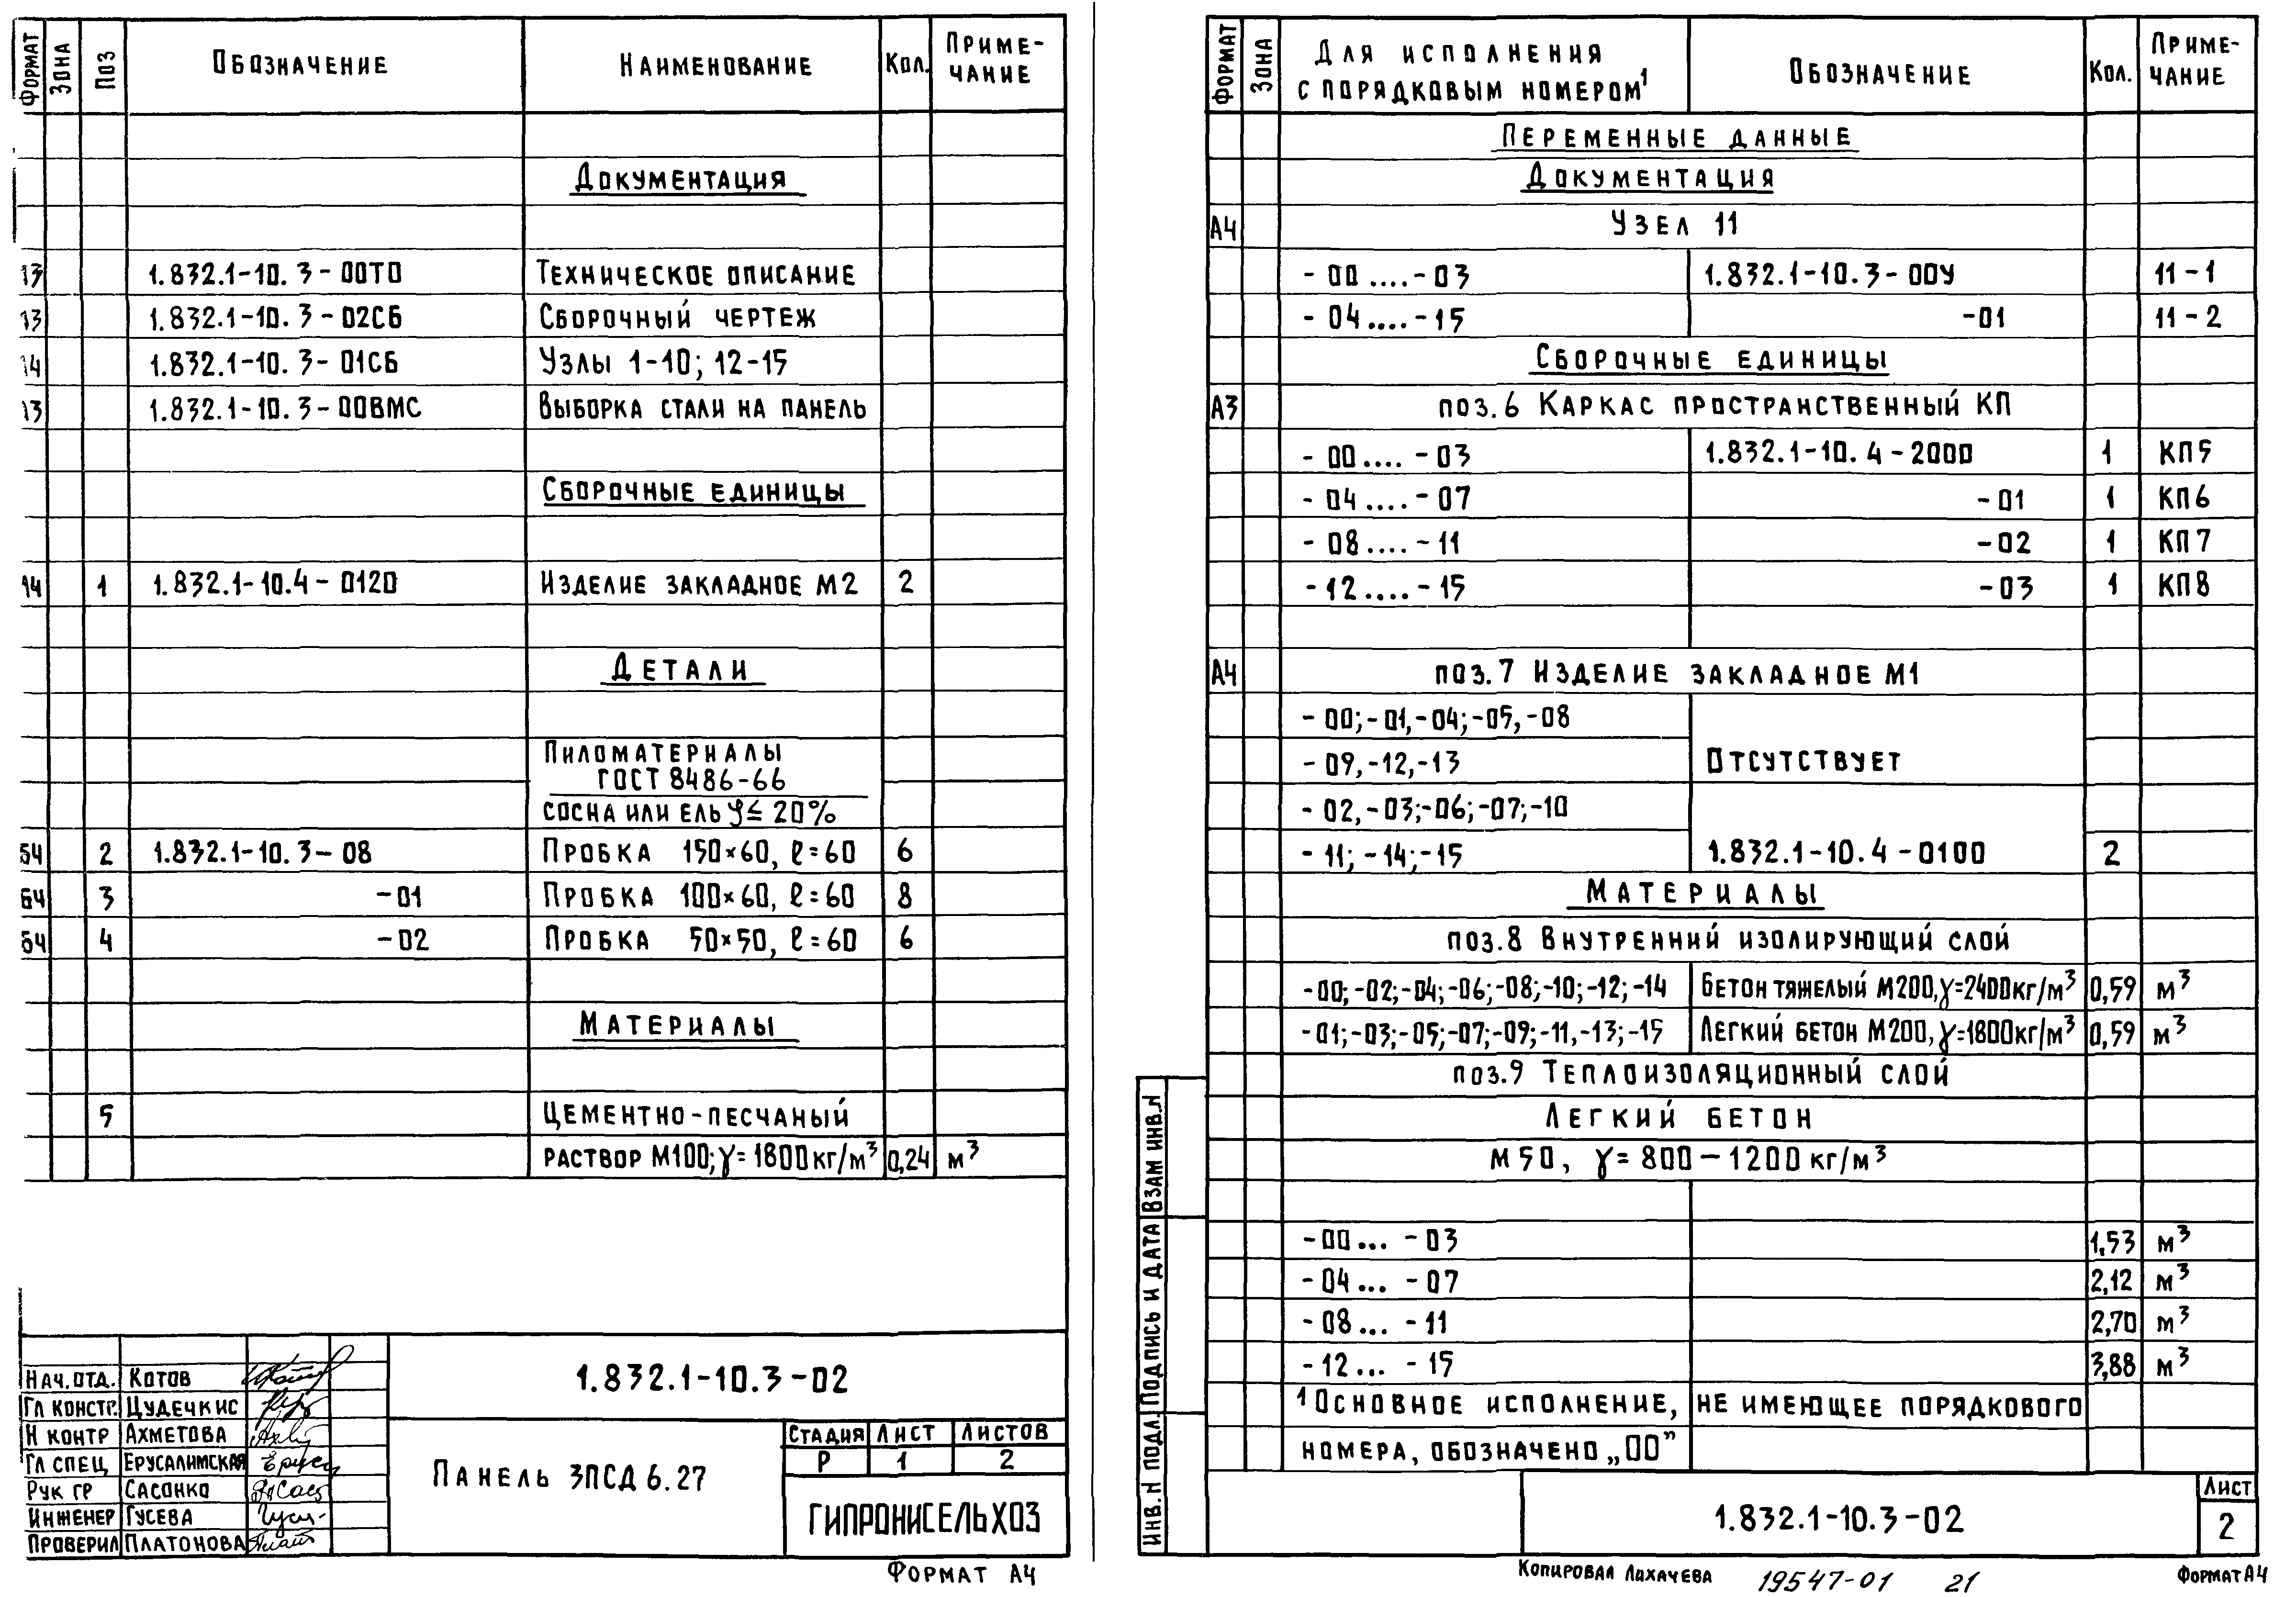 ФОРМАТ ЗОНА ПОЗ ОБОЗНАЧЕНИЕ НАИМЕНОВАНИЕ КОЛ. ПРИМЕ-
ЧАНИЕ
ДОКУМЕНТАЦИЯ
1.832.1-10.3-00ТО ТЕХНИЧЕСКОЕ ОПИСАНИЕ
1.832.1-10.3-02СБ СБОРОЧНЫЙ ЧЕРТЕЖ
1.832.1-10.3-01СБ УЗЛЫ 1-10; 12-15
1.832.1-10.3-00ВМС ВЫБОРКА СТАЛИ НА ПАНЕЛЬ
СБОРОЧНЫЕ ЕДИНИЦЫ
1 1.832.1-10.4-0120 ИЗДЕЛИЕ ЗАКЛАДНОЕ М2 2
ДЕТАЛИ
ПИЛОМАТЕРИАЛЫ
ГОСТ 8486-66
СОСНА ИЛИ ЕЛЬ φ≤20%
Б4 2 1.832.1-10.3-08 ПРОБКА 150×60, ℓ=60 6
Б4 3 -01 ПРОБКА 100×60, ℓ=60 8
Б4 4 -02 ПРОБКА 50×50, ℓ=60 6
МАТЕРИАЛЫ
5 ЦЕМЕНТНО-ПЕСЧАНЫЙ
РАСТВОР М100; γ=1800кг/м³ 0,24 м³
НАЧ.ОТД. КОТОВ
ГЛ КОНСТР. ЦУДЕЧКИС
Н КОНТР АХМЕТОВА
ГЛ СПЕЦ ЕРУСАЛИМСКАЯ
РУК ГР САСОНКО
ИНЖЕНЕР ГУСЕВА
ПРОВЕРИЛ ПЛАТОНОВА
1.832.1-10.3-02
ПАНЕЛЬ 3ПСД 6.27
СТАДИЯ ЛИСТ ЛИСТОВ
Р 1 2
ГИПРОНИСЕЛЬХОЗ
ФОРМАТ А4
ФОРМАТ ЗОНА ДЛЯ ИСПОЛНЕНИЯ
С ПОРЯДКОВЫМ НОМЕРОМ¹ ОБОЗНАЧЕНИЕ КОЛ. ПРИМЕ-
ЧАНИЕ
ПЕРЕМЕННЫЕ ДАННЫЕ
ДОКУМЕНТАЦИЯ
А4 УЗЕЛ 11
-00....-03 1.832.1-10.3-00У 11-1
-04....-15 -01 11-2
СБОРОЧНЫЕ ЕДИНИЦЫ
А3 ПОЗ.6 КАРКАС ПРОСТРАНСТВЕННЫЙ КП
-00....-03 1.832.1-10.4-2000 1 КП5
-04....-07 -01 1 КП6
-08....-11 -02 1 КП7
-12....-15 -03 1 КП8
А4 ПОЗ.7 ИЗДЕЛИЕ ЗАКЛАДНОЕ М1
-00;-01,-04;-05,-08
-09,-12,-13 ОТСУТСТВУЕТ
-02,-03;-06;-07;-10
-11;-14;-15 1.832.1-10.4-0100 2
МАТЕРИАЛЫ
ПОЗ.8 ВНУТРЕННИЙ ИЗОЛИРУЮЩИЙ СЛОЙ
-00;-02;-04;-06;-08;-10;-12;-14 БЕТОН ТЯЖЕЛЫЙ М200,γ=2400кг/м³ 0,59 м³
-01;-03;-05;-07;-09;-11,-13;-15 ЛЕГКИЙ БЕТОН М200,γ=1800кг/м³ 0,59 м³
ПОЗ.9 ТЕПЛОИЗОЛЯЦИОННЫЙ СЛОЙ
ЛЕГКИЙ БЕТОН
М50, γ=800-1200кг/м³
-00...-03 1,53 м³
-04...-07 2,12 м³
-08...-11 2,70 м³
-12...-15 3,88 м³
¹ ОСНОВНОЕ ИСПОЛНЕНИЕ, НЕ ИМЕЮЩЕЕ ПОРЯДКОВОГО
НОМЕРА, ОБОЗНАЧЕНО „00”
ИНВ.Н ПОДЛ. ПОДПИСЬ И ДАТА ВЗАМ ИНВ.N
1.832.1-10.3-02
ЛИСТ
2
КОПИРОВАЛ ЛИХАЧЕВА 19547-01 21 ФОРМАТ А4